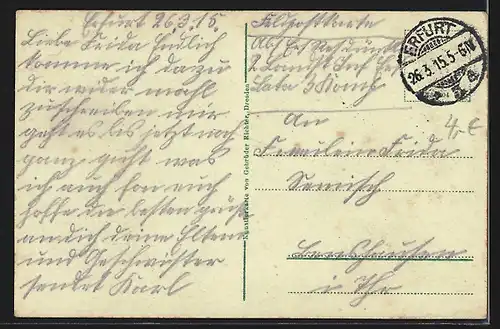 Erfurt 26.3.15.
Liebe Frida Endlich
komme ich dazu
dir wider mahl
zuschreiben mir
geht es bis jetzt noch
ganz gueht was
ich auch fon euch
hoffe die besten grüße
an dich deine Eltern
und Geschwister
sendet Karl
Künstlerkarte von Gebrüder Richter, Dresden
Feldpostkarte
2 Landst
An
Fräulein Frida
i Thr
ERFURT
26.3.15.5-6N
4,- €